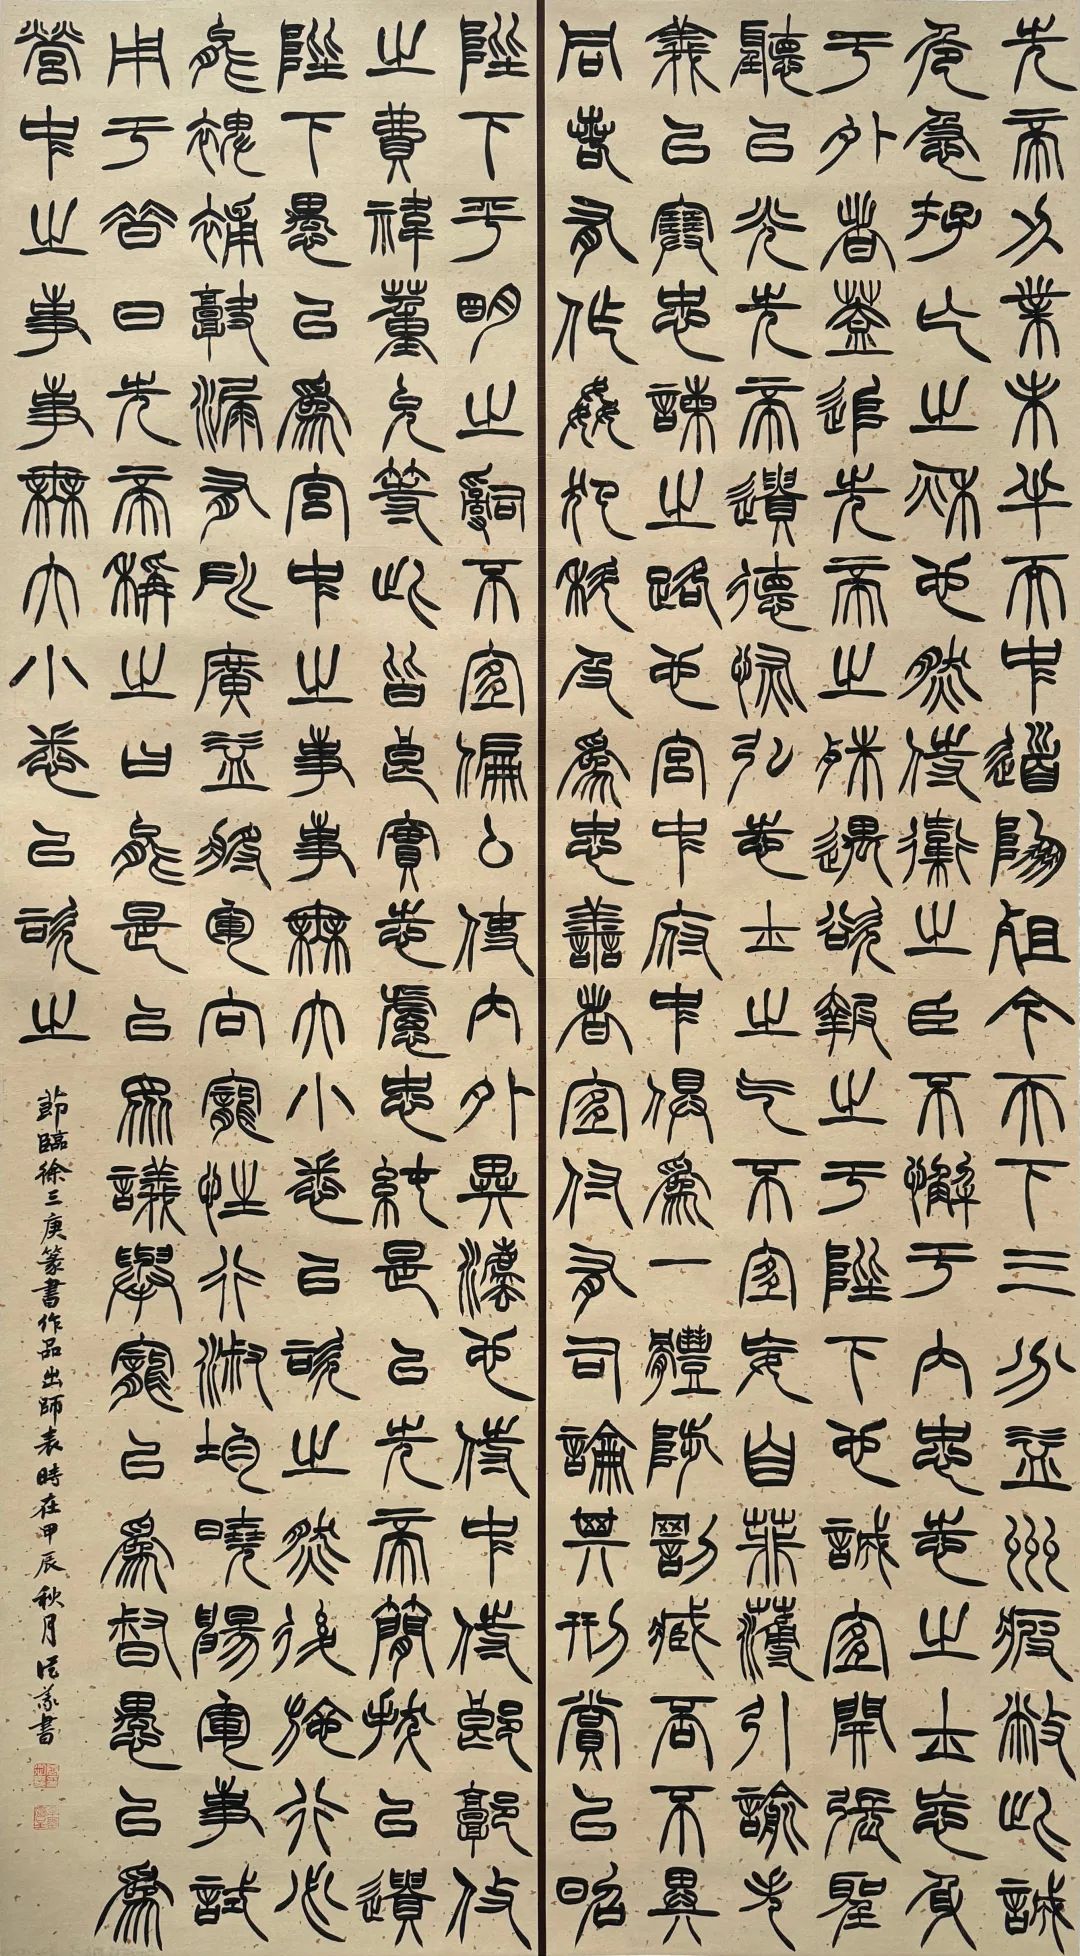 先帝功業未半而中道崩殂今天下三分益州疲敝此誠
危急存亡之秋也然侍衛之臣不懈于內忠志之士忘身
于外者蓋追先帝之殊遇欲報之于陛下也誠宜開張聖
聽以光先帝遺德恢弘志士之气不宜妄自菲薄引諭失
義以塞忠諫之路也宮中府中俱為一體陟罰臧否不異
同若有作姦犯科及為忠善者宜付有司論其刑賞以昭
陛下平明之治不宜偏私使內外異法也侍中侍郎郭攸
之費禕董允等此皆良實志慮忠純是以先帝簡拔以遺
陛下愚以為宮中之事事無大小悉以諮之然後施行必
能裨補闕漏有所廣益將軍向寵性行淑均曉暢軍事試
用于昔日先帝稱之曰能是以眾議舉寵以為督愚以為
營中之事事無大小悉以諮之
節臨徐三庚篆書作品出師表時在甲辰秋月義書